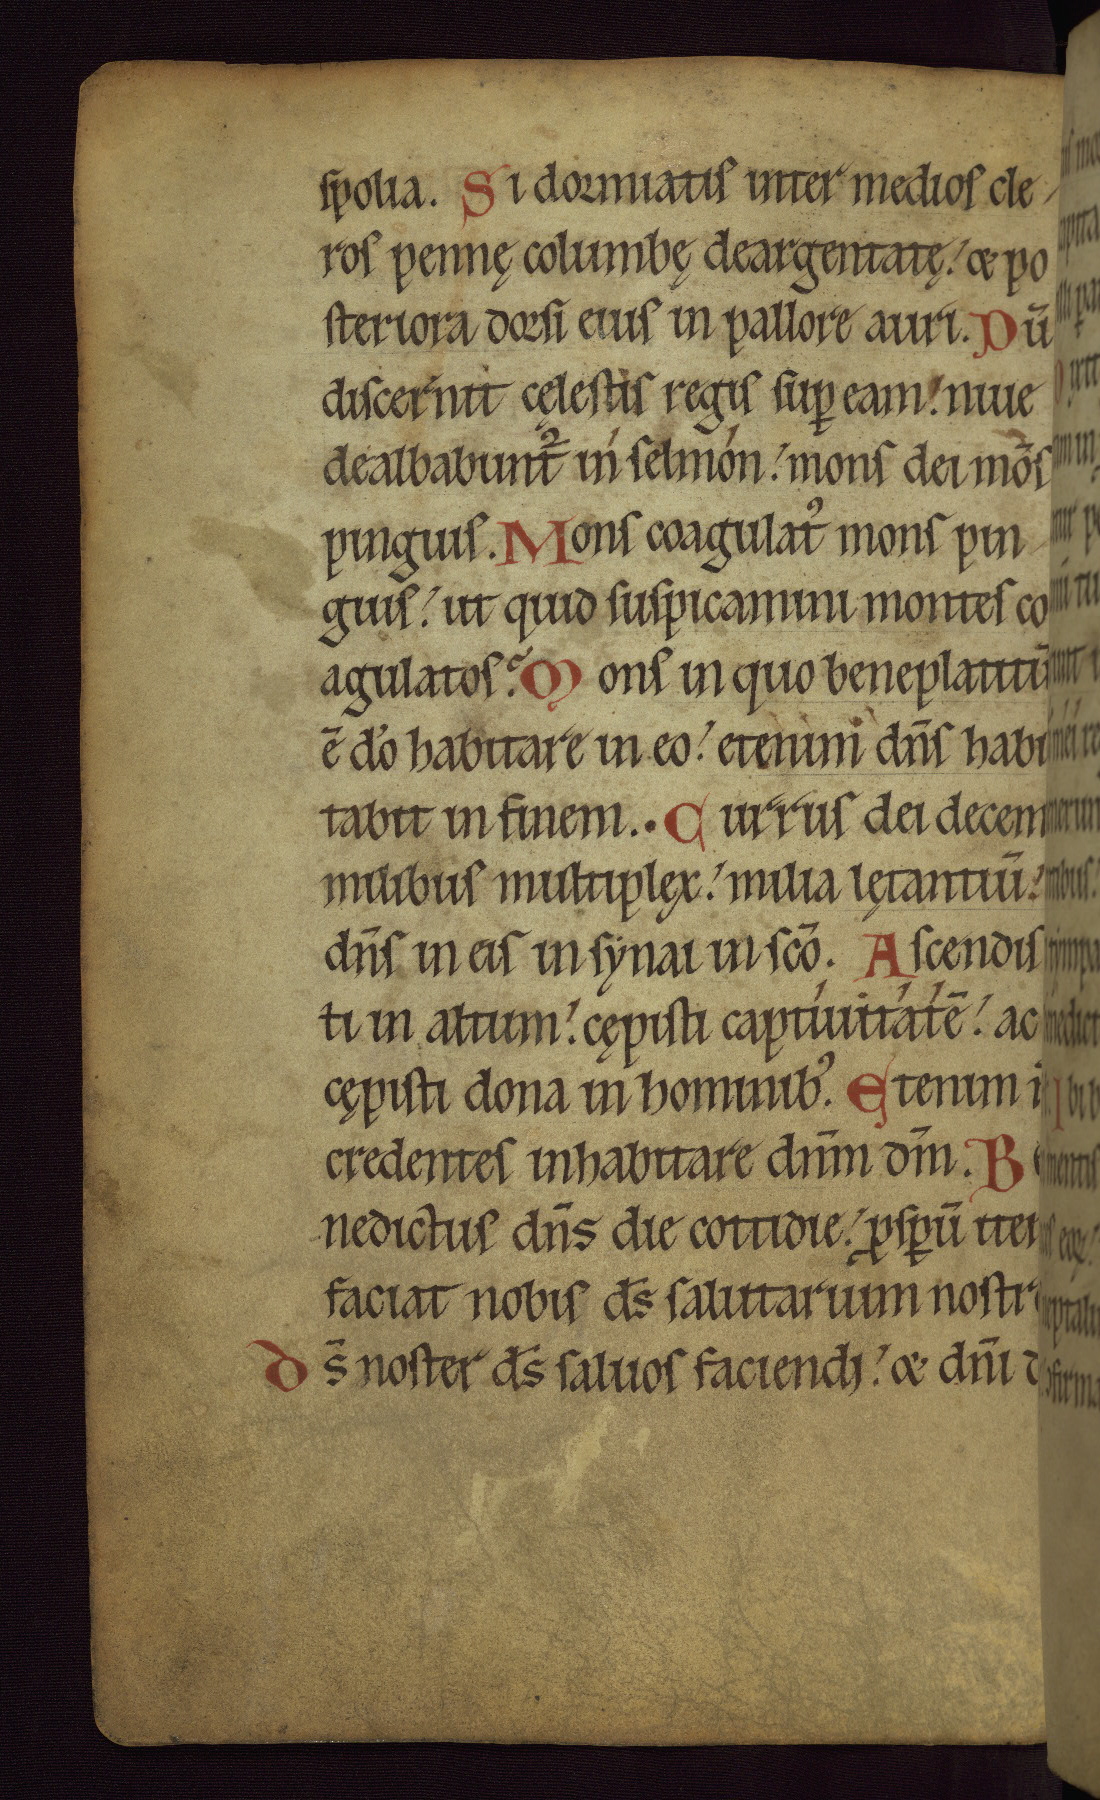 spolia. Si dormiatis inter medios cle-
ros pennę columbę deargentatę: & po
steriora dorsi eius in pallore auri. Dū
discernit cęlestis regis sup̱ eam: niue
dealbabunt᷑ in selmón: mons dei mōs
pinguis. Mons coagulatꝰ mons pin-
guis: ut quid suspicamini montes co
agulatos? Mons in quo beneplacitū
ē do̅ habitare in eo: etenim dn̄s habi
tabit in finem. Currus dei decem
milibus multiplex: milia lętantiū:
dn̄s in eis in synai in scō. Ascendis
ti in altum: cępisti captiuitatē: ac
cępisti dona in hominibꝰ. Etenim
credentes inhabitare dn̄m dm̄. B
nedictus dn̄s die cottidie: ꝓsꝑū iter
faciat nobis ds̄ salutarium
ds̄ noster ds̄ saluos faciendi: & dn̄i